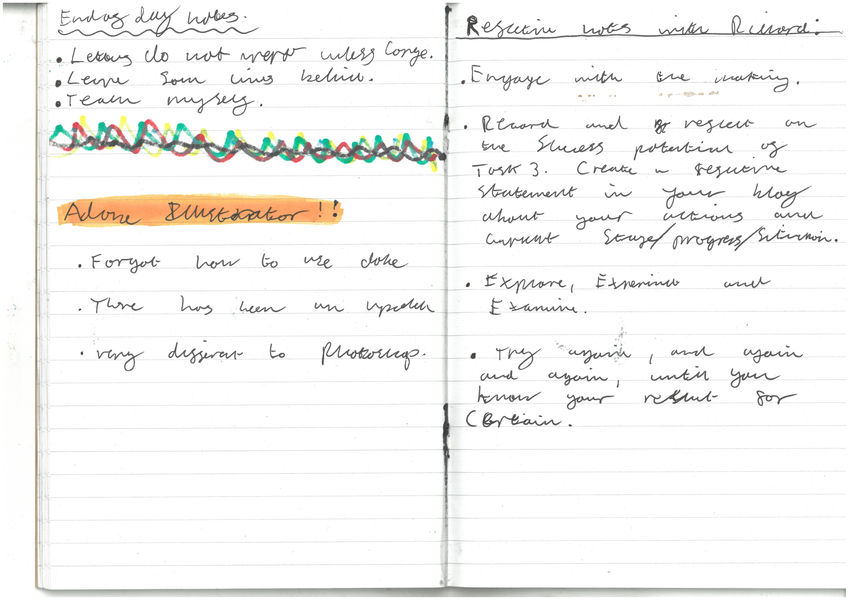 End of day notes.
• Letters do not unless large.
• Leave some lines behind.
• Teach myself.
Adobe Illustrator!!
• Forgot how to use
• There has been an update
• very different to Photoshop.
Reflective notes with Richard:
• Engage with the making.
• Record and reflect on
the success potential of
Task 3. Create a reflective
statement in your blog
about your actions and
current stage/progress/situation.
• Explore, Experience and
Examine.
• Try again, and again
and again, until you
know your result for
certain.